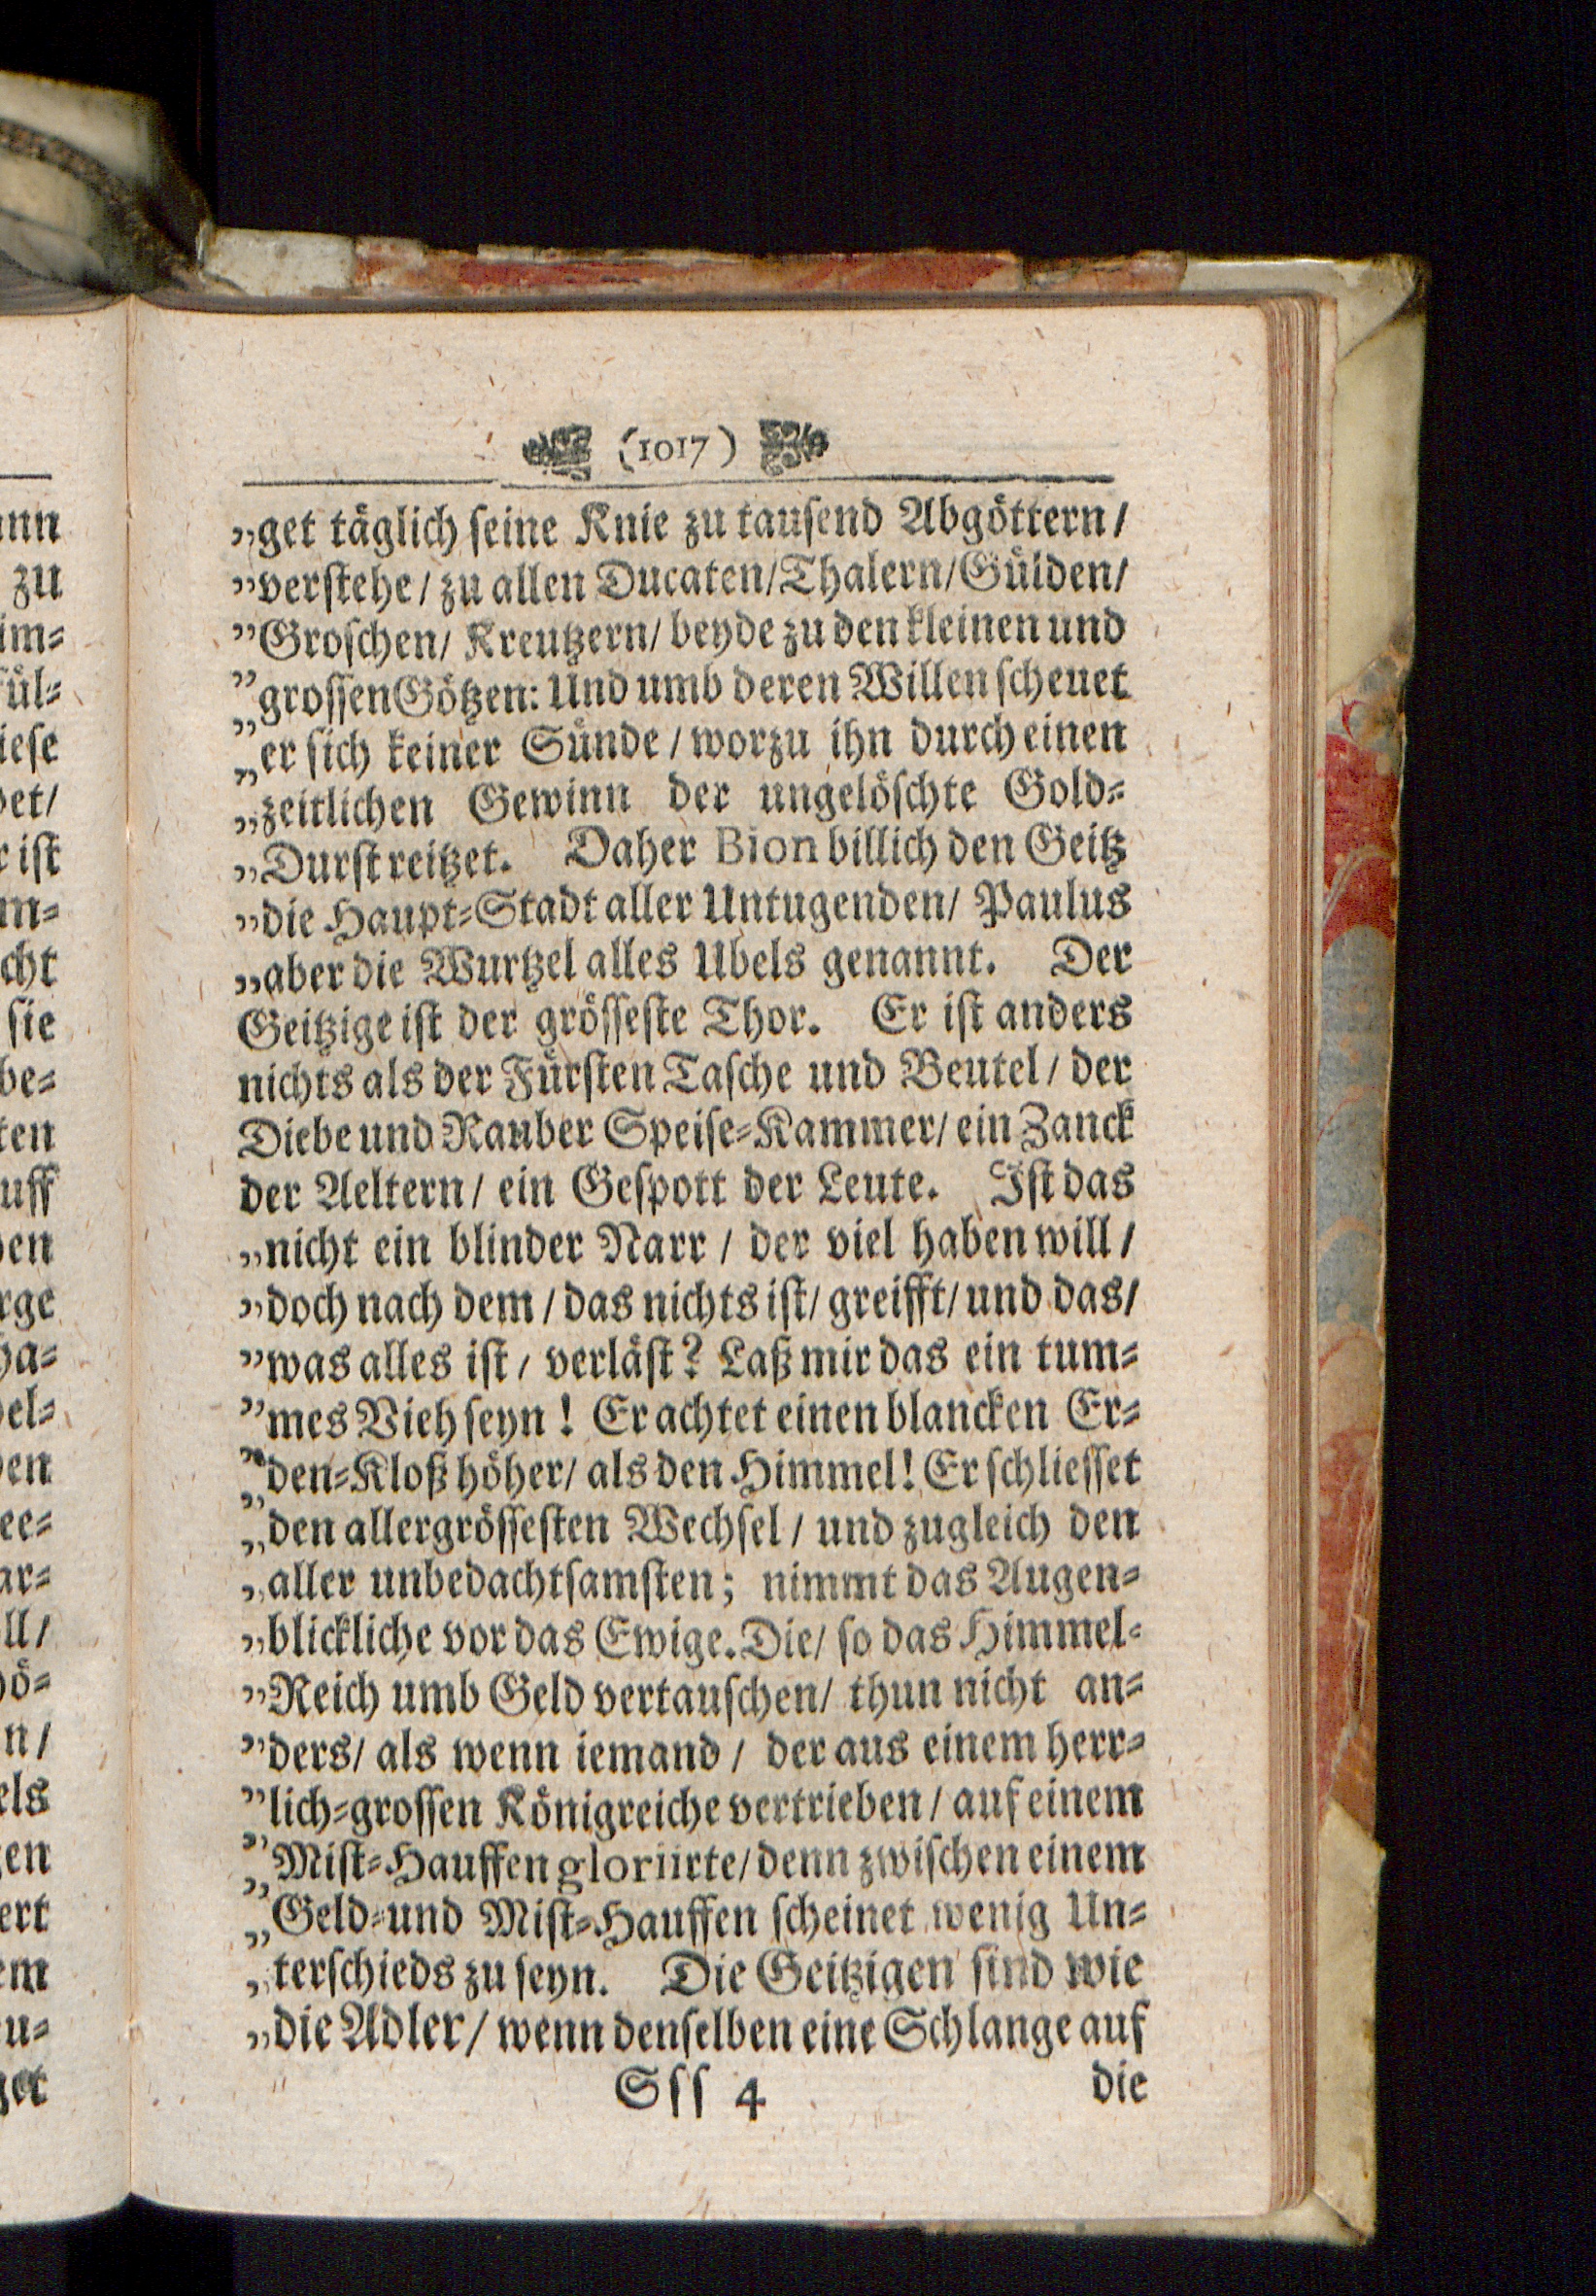 (1017)
„get täglich ſeine Knie zu tauſend Abgöttern/
”verſtehe/ zu allen Ducaten/Thalern/Gülden/
”Groſchen/ Kreutzern/ beyde zu den kleinen und
”groſſen Götzen: Und umb deren Willen ſcheuet
„er ſich keiner Sünde/ worzu ihn durch einen
„zeitlichen Gewinn der ungelöſchte Gold-
„Durſt reitzet. Daher Bion billich den Geitz
„die Haupt-Stadt aller Untugenden/ Paulus
„aber die Wurtzel alles Ubels genannt. Der
Geitzige iſt der gröſſeſte Thor. Er iſt anders
nichts als der Fürſten Taſche und Beutel/ der
Diebe und Rauber Speiſe-Kammer/ ein Zanck
der Aeltern/ ein Geſpott der Leute. Iſt das
„nicht ein blinder Narr/ der viel haben will/
„doch nach dem/ das nichts iſt/ greifft/ und das/
”was alles iſt/ verläſt? Laß mir das ein tum-
”mes Vieh ſeyn! Er achtet einen blancken Er-
”den-Kloß höher/ als den Himmel! Er ſchlieſſet
„den allergröſſeſten Wechſel/ und zugleich den
„aller unbedachtſamſten; nimmt das Augen-
„blickliche vor das Ewige. Die/ ſo das Himmel-
”Reich umb Geld vertauſchen/ thun nicht an-
”ders/ als wenn iemand/ der aus einem herr-
”lich-groſſen Königreiche vertrieben/ auf einem
”Miſt-Hauffen gloriirte/ denn zwiſchen einem
„Geld-und Miſt-Hauffen ſcheinet wenig Un-
„terſchieds zu ſeyn. Die Geitzigen ſind wie
„die Adler/ wenn denſelben eine Schlange auf
Sſſ 4 die